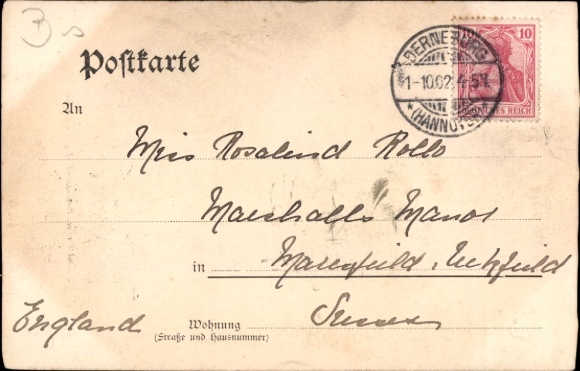 3 s
Postkarte
10
DERNEBURG
1-10.02. 4-5N.
* (HANNOVER) *
DEUTSCHES REICH
An
Miss Rosalind Rollo
Marshalls Manor
in Maresfield, Uckfield
England
Wohnung
Sussex
(Straße und Hausnummer)